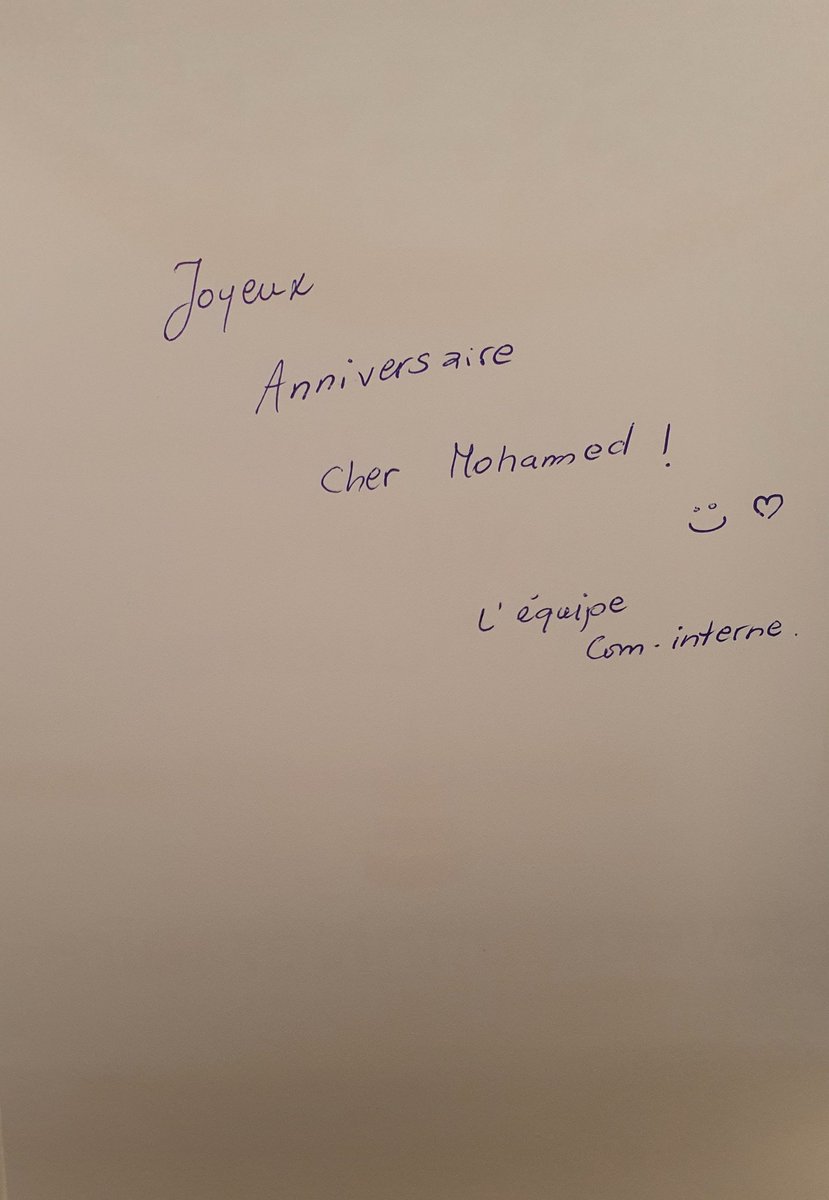 Joyeux
Anniversaire
Cher Mohamed !
L'équipe
Com-interne.